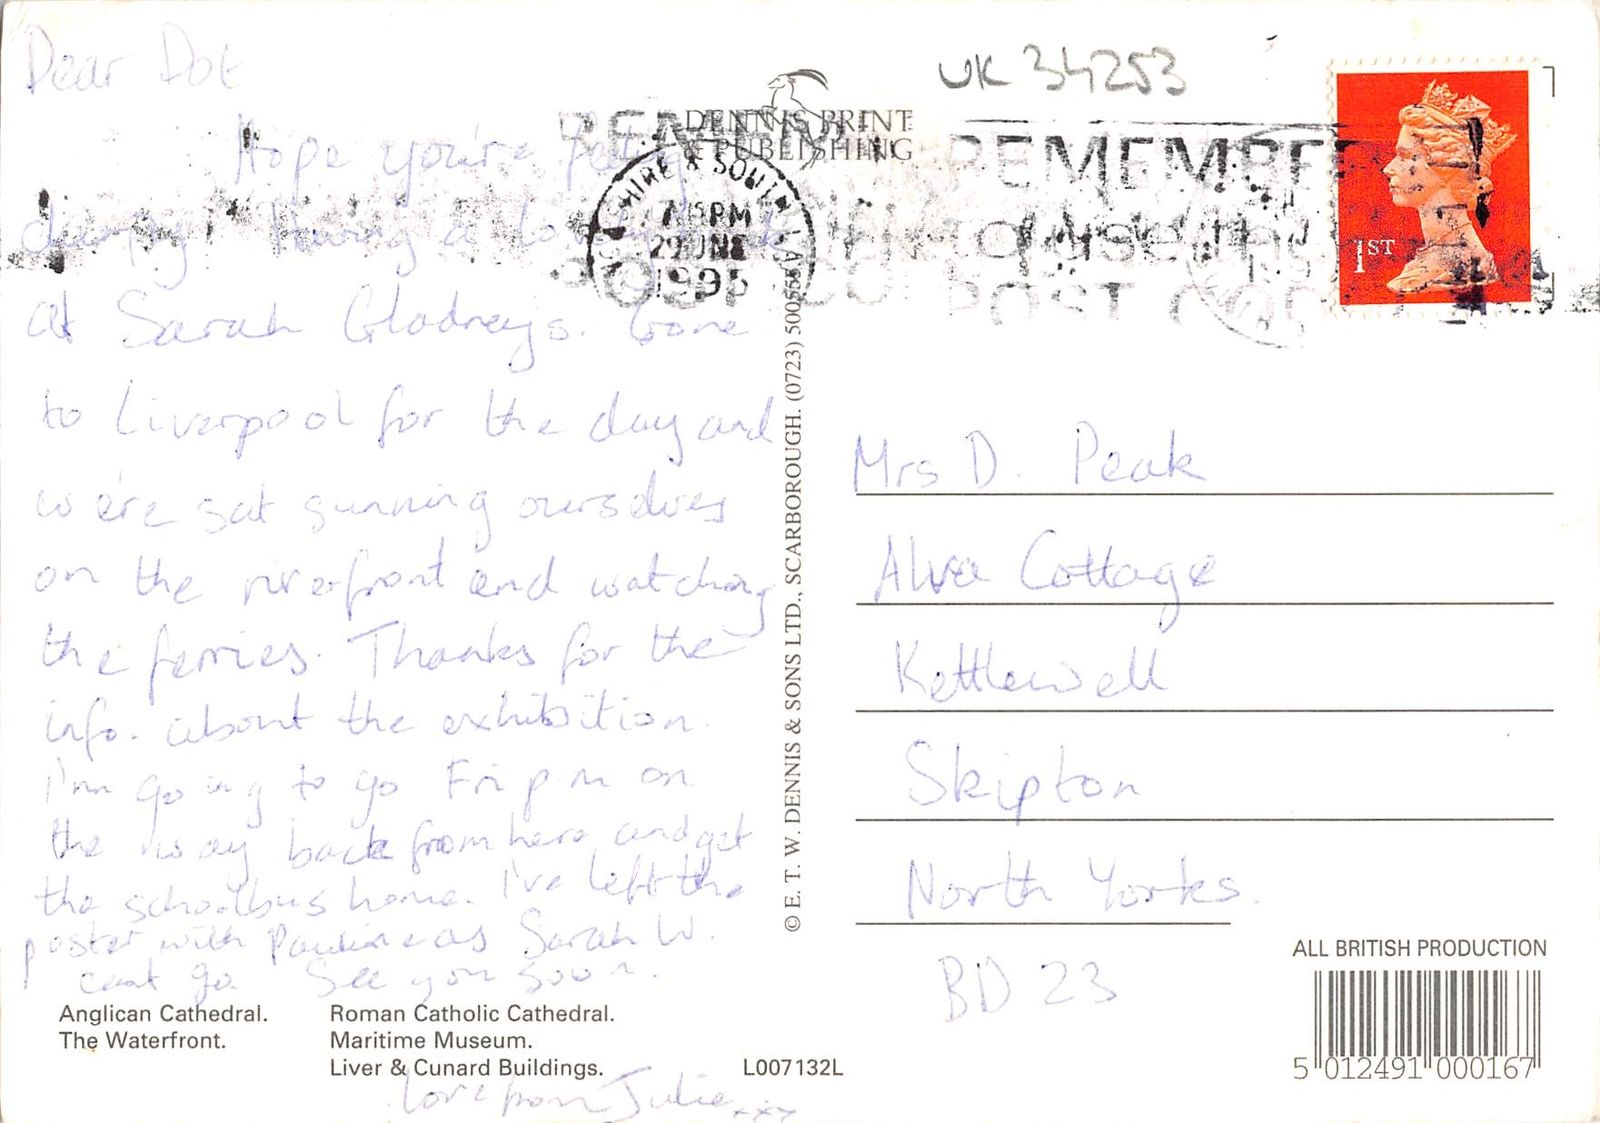 Dear Dot
Hope you're feeling
chirpy. Having a
at Sarah Gladneys. Gone
to Liverpool for the day and
we're sat sunning ourselves
on the riverfront and watching
the ferries. Thanks for the
info. about the exhibition.
I'm going to go Fri pm on
the way back from here and get
the schoolbus home. I've left the
poster with Pauline as Sarah W.
cant go. See you soon.
Love from Julie xxx
Anglican Cathedral.
The Waterfront.
Roman Catholic Cathedral.
Maritime Museum.
Liver & Cunard Buildings.
L007132L
DENNIS PRINT
& PUBLISHING
© E. T. W. DENNIS & SONS LTD., SCARBOROUGH. (0723) 500555
UK 34253
SHIRE & SOUTH
PM
29 JNE
1995
REMEMBER
to use the
POST CODE
1ST
Mrs D. Peak
Alva Cottage
Kettlewell
Skipton
North Yorks.
BD 23
ALL BRITISH PRODUCTION
5 012491 000167